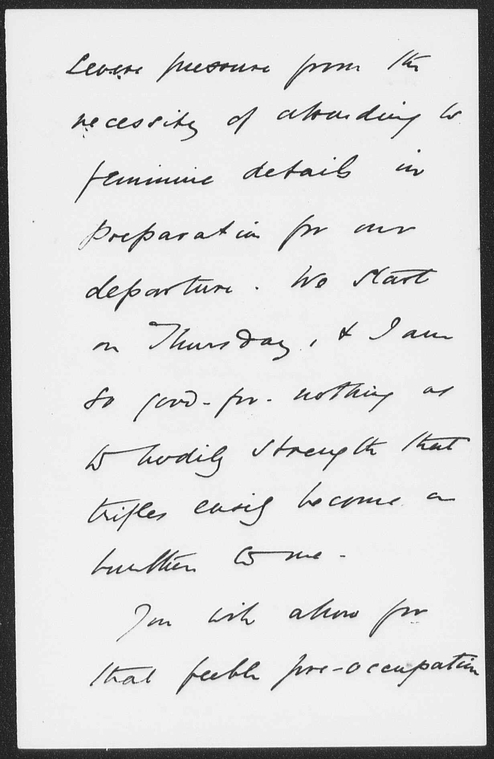 severe pressure from the
necessity of attending to
feminine details in
preparation for our
departure. We start
on Thursday, & I am
so good-for-nothing as
to bodily strength that
trifles easily become a
burthen to me.
You will allow for
that feeble pre-occupation